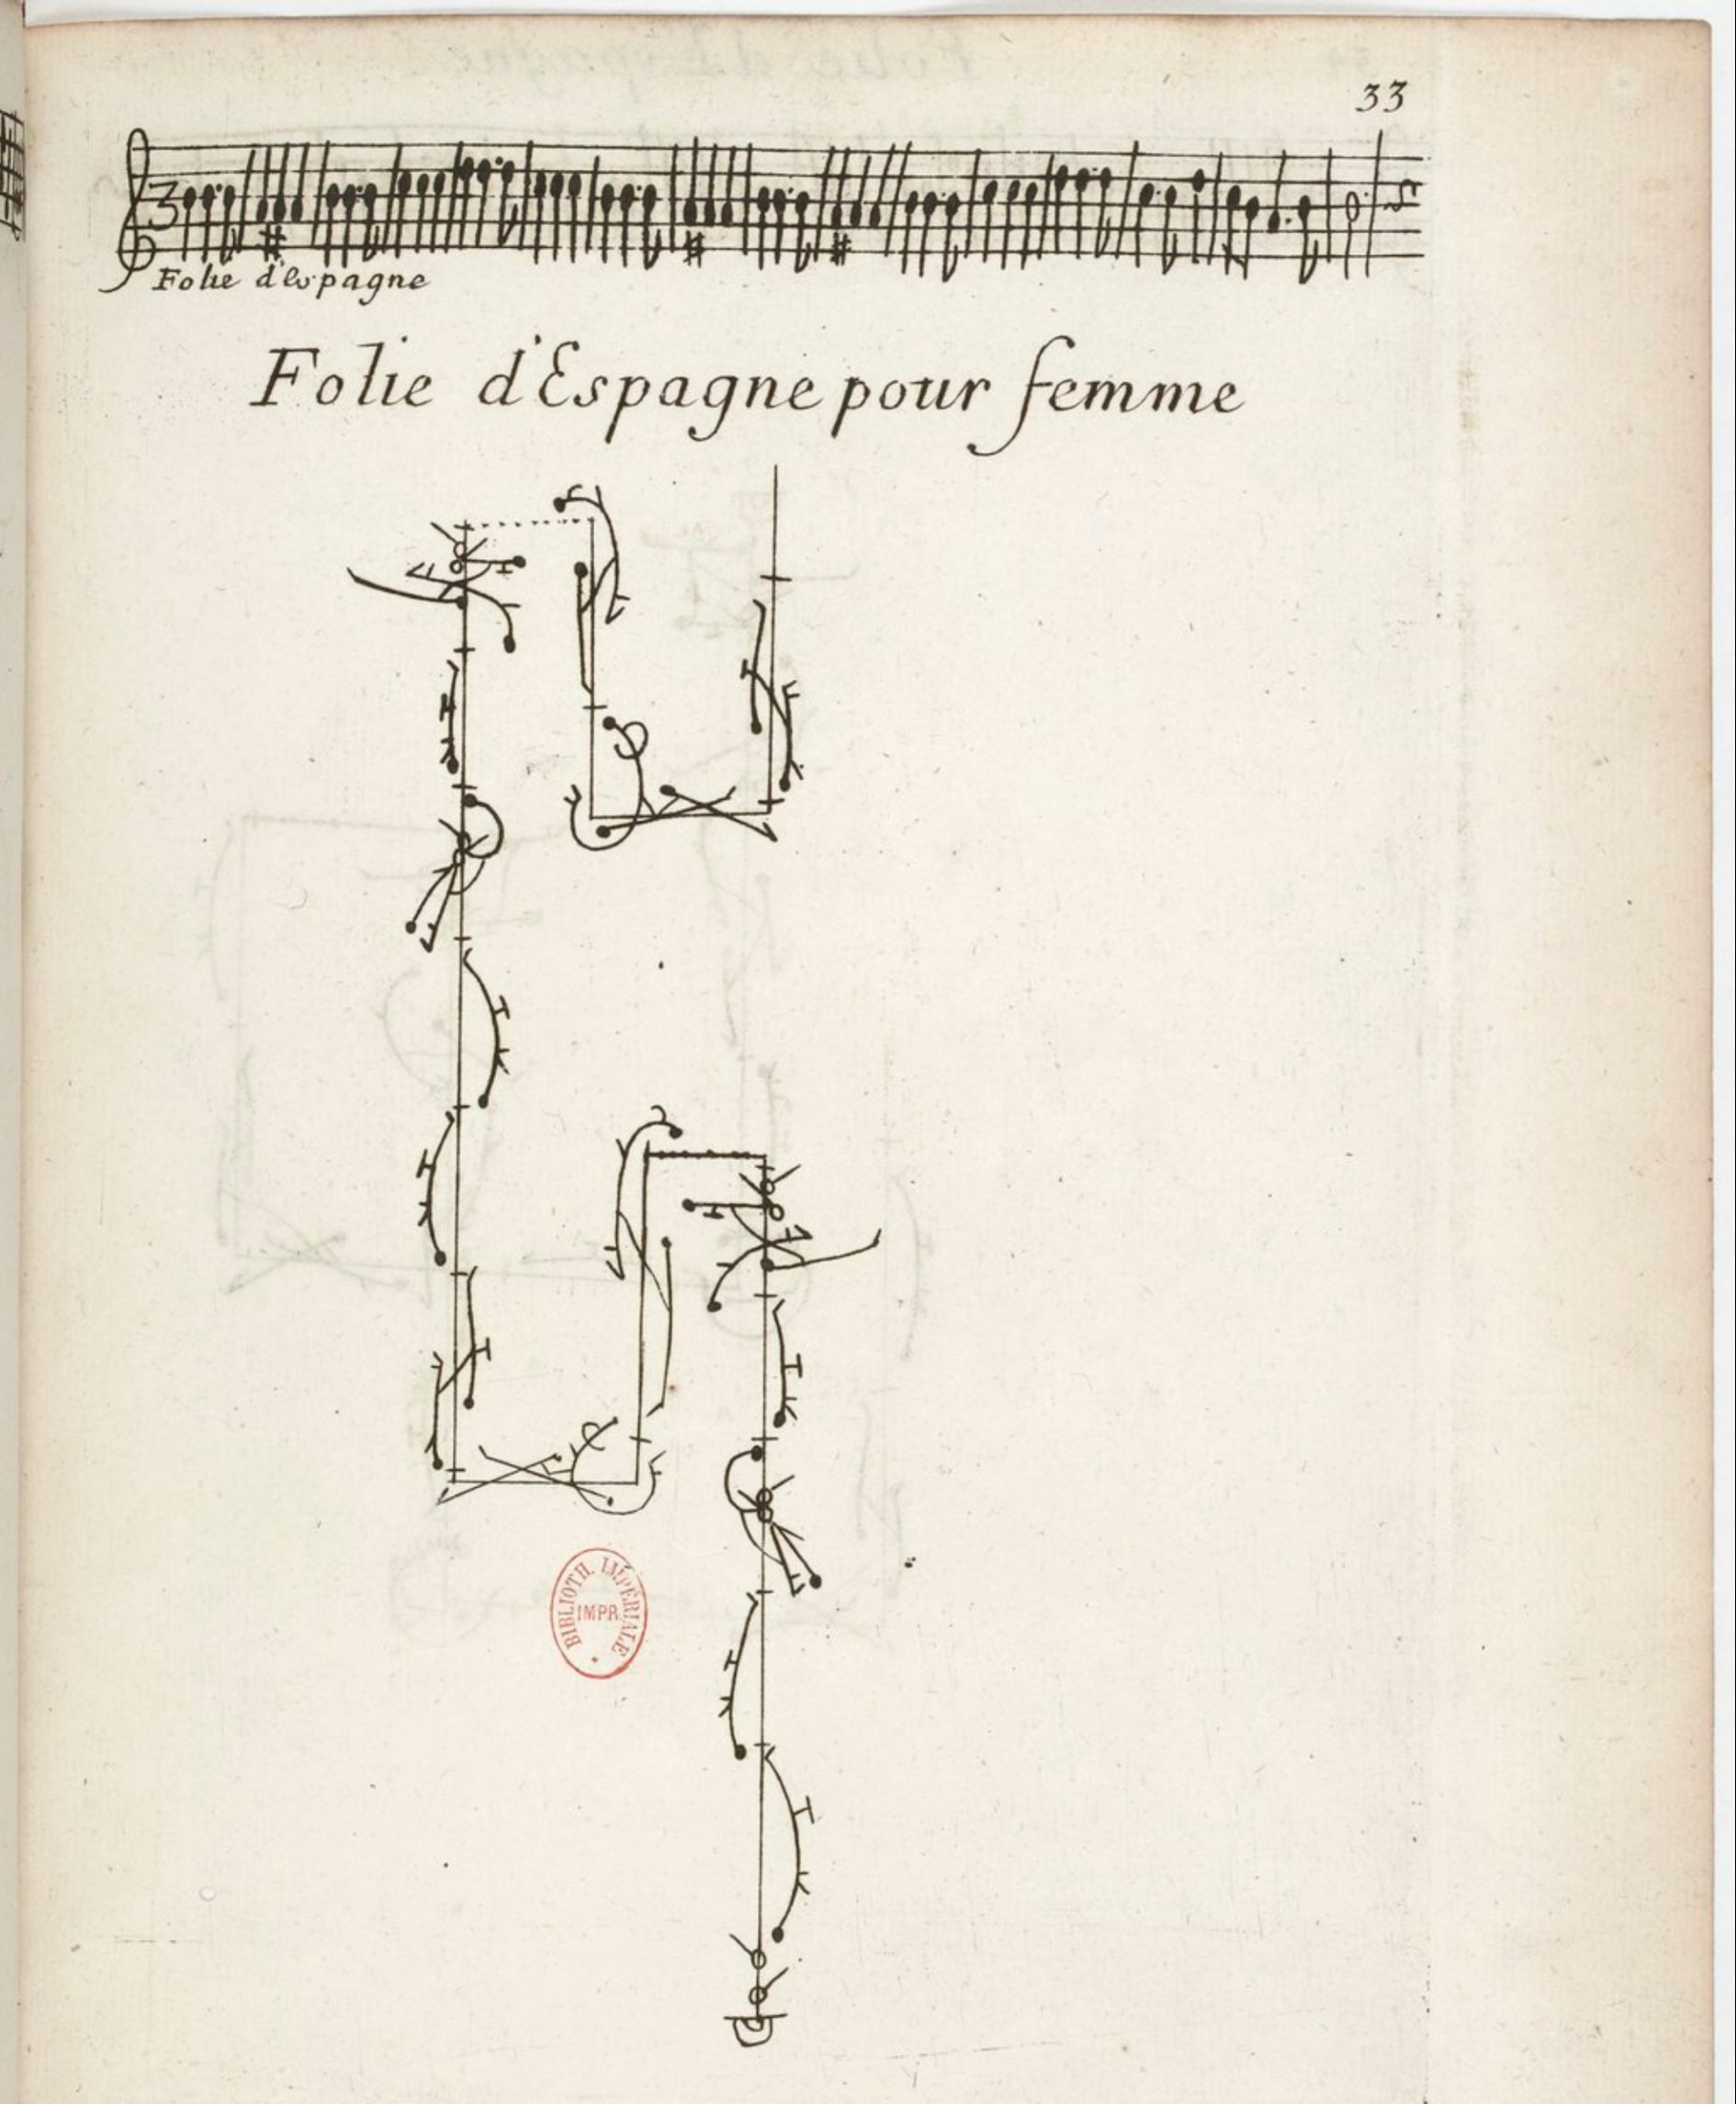 33
3
Folie d'Espagne
Folie d'Espagne pour femme
BIBLIOTH. IMPÉRIALE
IMPR.